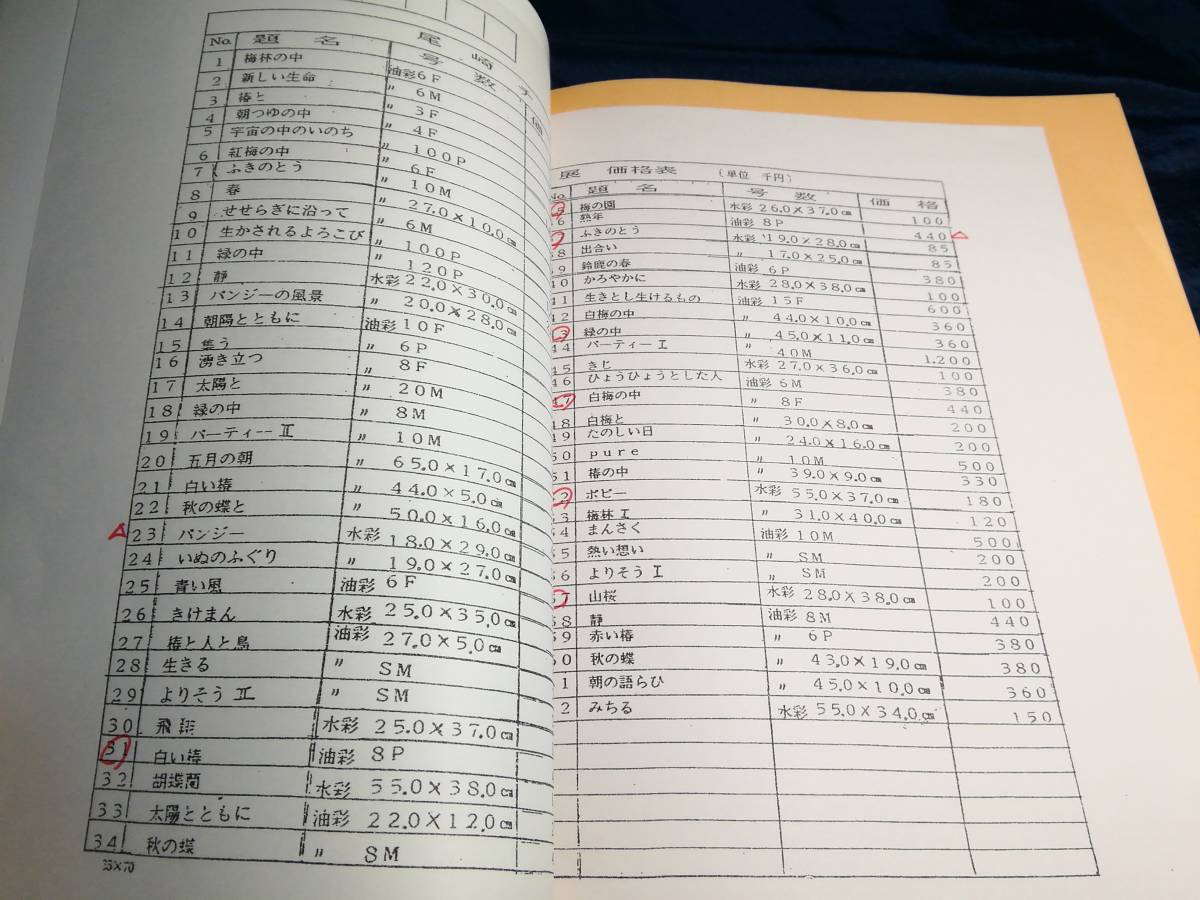 No. 題名 尾崎 号数
1 梅林の中 油彩 6F
2 新しい生命 〃 6M
3 椿と 〃 3F
4 朝つゆの中 〃 4F
5 宇宙の中のいのち 〃 100P
6 紅梅の中 〃 6F
7 ふきのとう 〃 10M
8 春 〃 27.0×10.0㎝
9 せせらぎに沿って 〃 6M
10 生かされるよろこび 〃 100P
11 緑の中 〃 120P
12 静 水彩 22.0×30.0㎝
13 パンジーの風景 〃 20.0×28.0㎝
14 朝陽とともに 油彩 10F
15 集う 〃 6P
16 湧き立つ 〃 8F
17 太陽と 〃 20M
18 緑の中 〃 8M
19 パーティーⅡ 〃 10M
20 五月の朝 〃 65.0×17.0㎝
21 白い椿 〃 44.0×5.0㎝
22 秋の蝶と 〃 50.0×16.0㎝
23 パンジー 水彩 18.0×29.0㎝
24 いぬのふぐり 〃 19.0×27.0㎝
25 青い風 油彩 6F
26 きけまん 水彩 25.0×35.0㎝
27 椿と人と鳥 油彩 27.0×5.0㎝
28 生きる 〃 SM
29 よりそうⅡ 〃 SM
30 飛翔 水彩 25.0×37.0㎝
31 白い椿 油彩 8P
32 胡蝶蘭 水彩 55.0×38.0㎝
33 太陽とともに 油彩 22.0×12.0㎝
34 秋の蝶 〃 SM
展 価格表 (単位 千円)
No. 題名 号数 価格
梅の園 水彩 26.0×37.0㎝ 100
36 熟年 油彩 8P 440
ふきのとう 水彩 19.0×28.0㎝ 85
38 出合い 〃 17.0×25.0㎝ 85
39 鈴鹿の春 油彩 6P 380
40 かろやかに 水彩 28.0×38.0㎝ 100
41 生きとし生けるもの 油彩 15F 600
42 白梅の中 〃 44.0×10.0㎝ 360
3 緑の中 〃 45.0×11.0㎝ 360
44 パーティーⅠ 〃 40M 1,200
45 きじ 水彩 27.0×36.0㎝ 100
46 ひょうひょうとした人 油彩 6M 380
47 白梅の中 〃 8F 440
48 白梅と 〃 30.0×8.0㎝ 200
49 たのしい日 〃 24.0×16.0㎝ 200
50 pure 〃 10M 500
51 椿の中 〃 39.0×9.0㎝ 330
2 ポピー 水彩 55.0×37.0㎝ 180
53 梅林Ⅰ 〃 31.0×40.0㎝ 120
54 まんさく 油彩 10M 500
55 熱い想い 〃 SM 200
56 よりそうⅠ 〃 SM 200
57 山桜 水彩 28.0×38.0㎝ 100
58 静 油彩 8M 440
59 赤い椿 〃 6P 380
60 秋の蝶 〃 43.0×19.0㎝ 380
1 朝の語らひ 〃 45.0×10.0㎝ 360
2 みちる 水彩 55.0×34.0㎝ 150